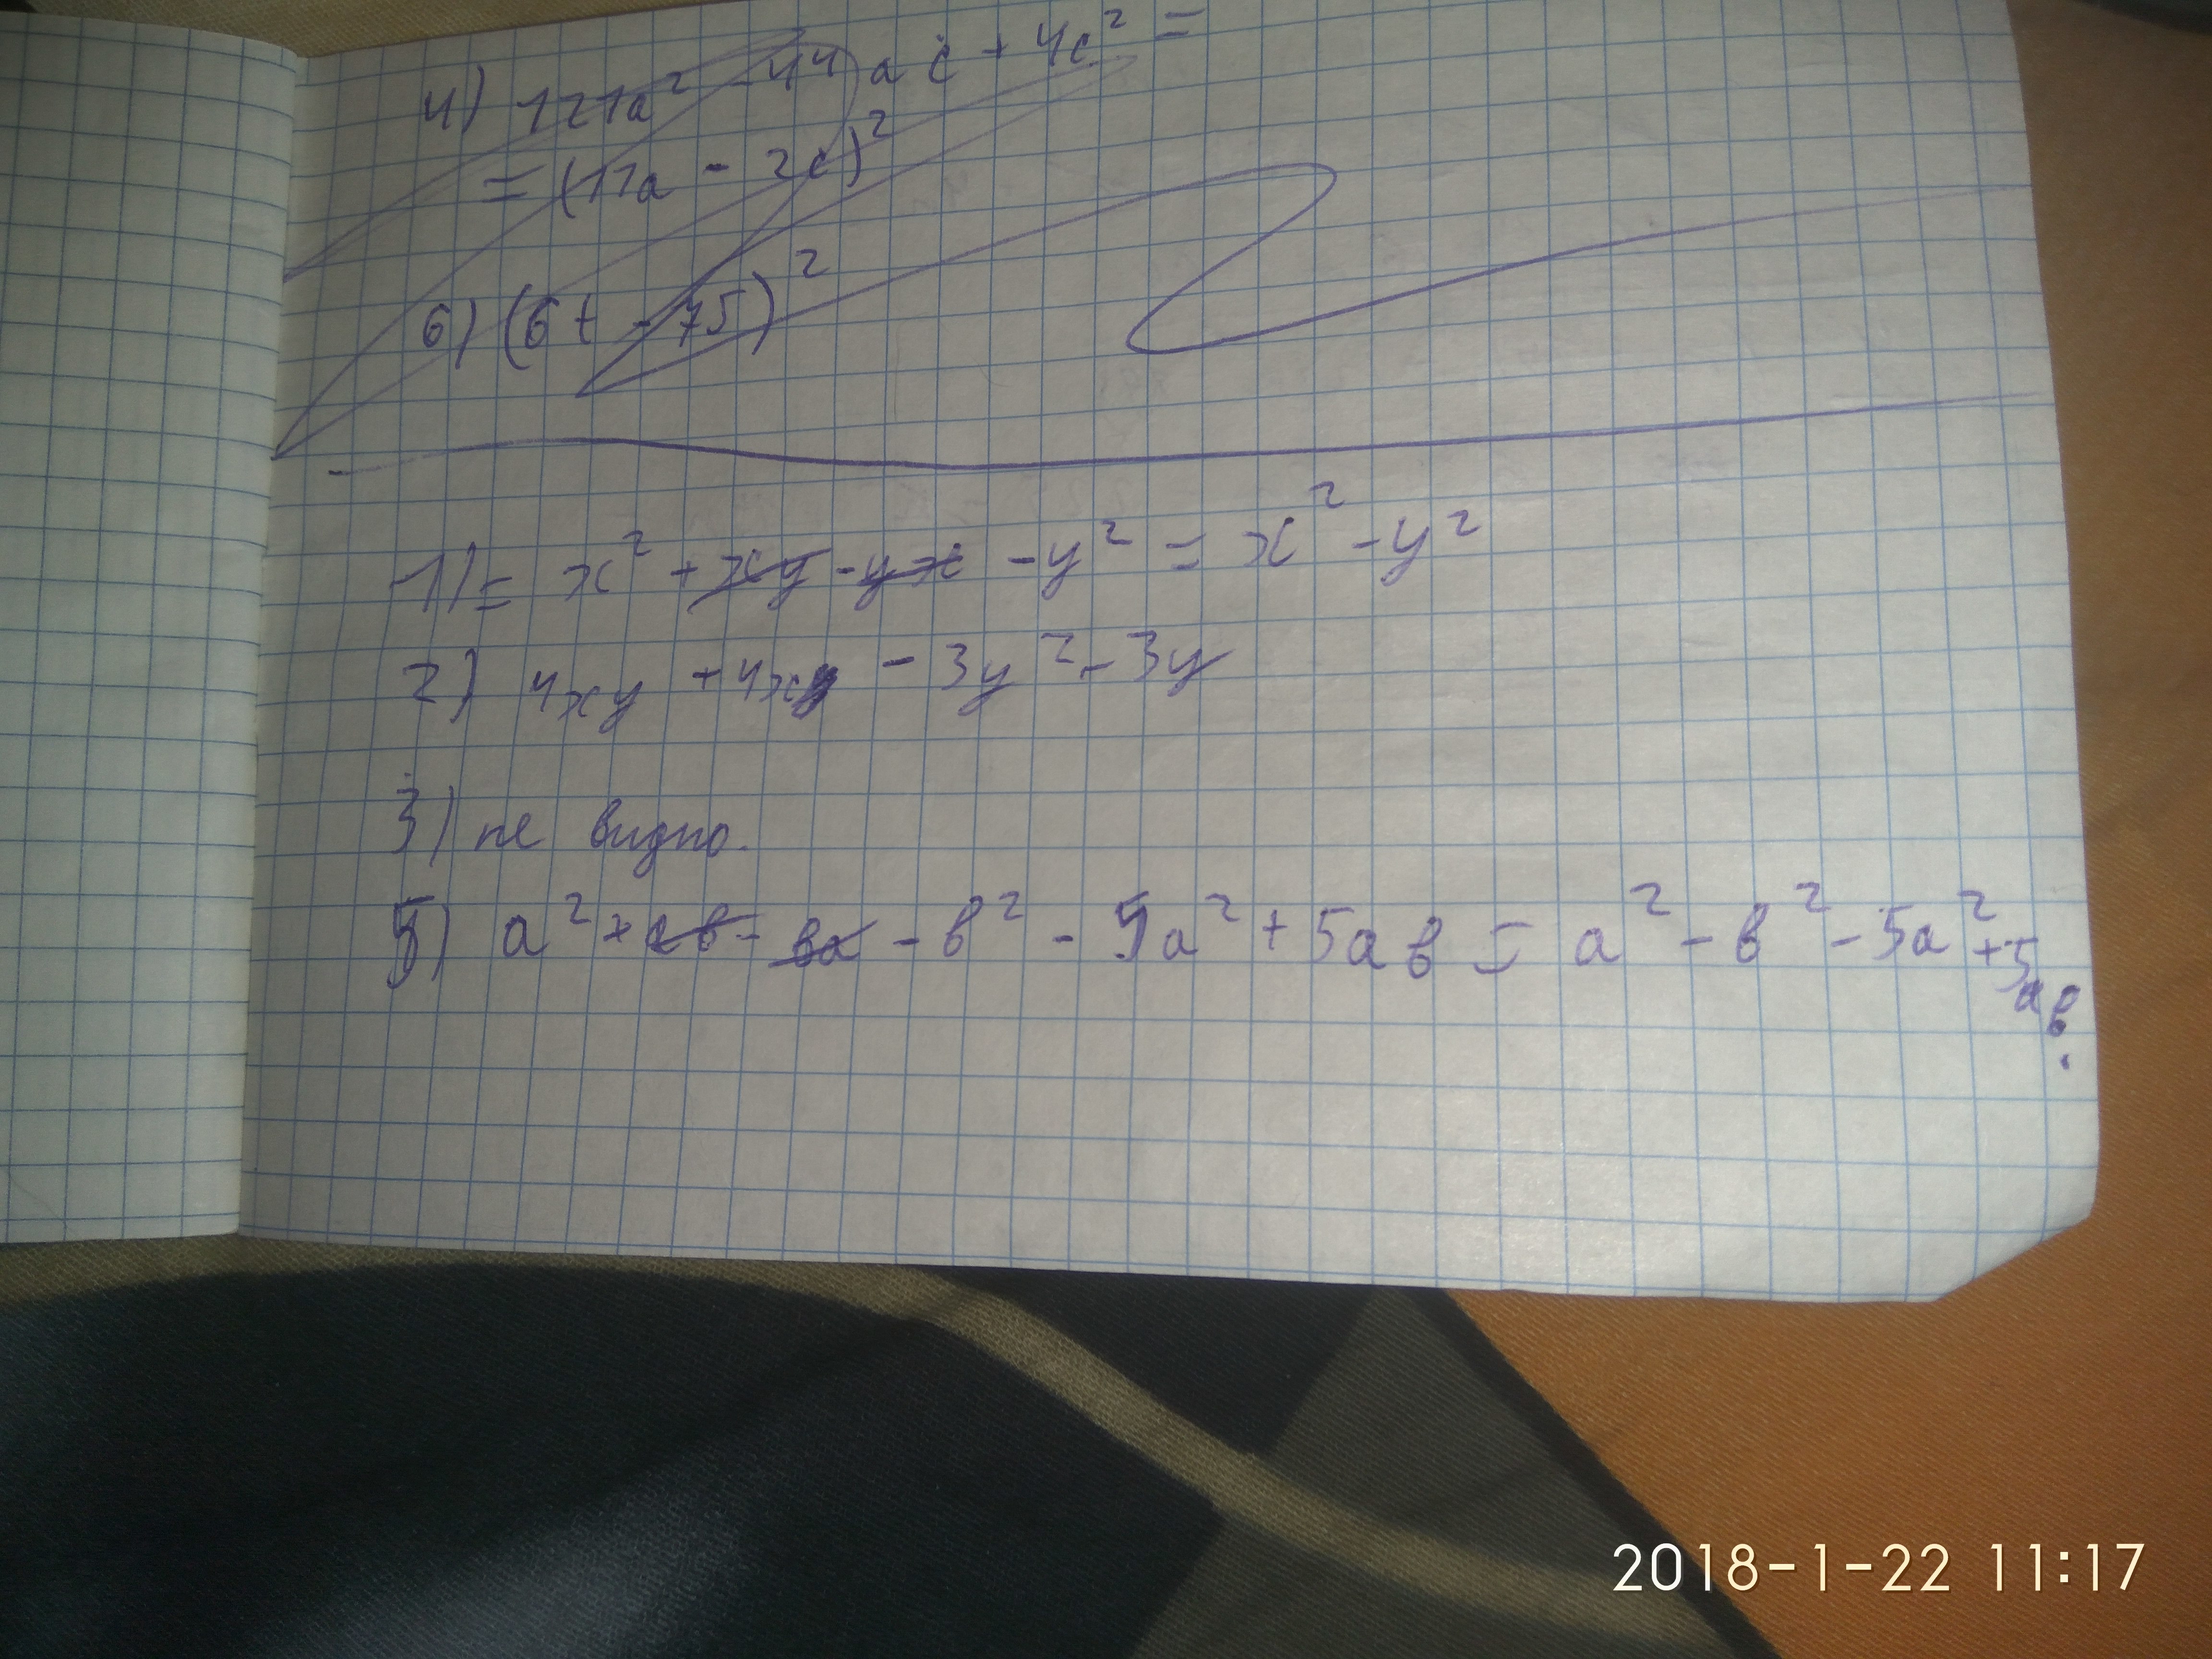 4) 121a² - 44ac + 4c² =
= (11a - 2c)²
6) (6t - 75)²
1) = x² + xy - yx - y² = x² - y²
2) 4xy + 4x - 3y² - 3y
3) не видно.
5) a² + ab - ba - b² - 5a² + 5ab = a² - b² - 5a² + 5ab.
2018-1-22 11:17